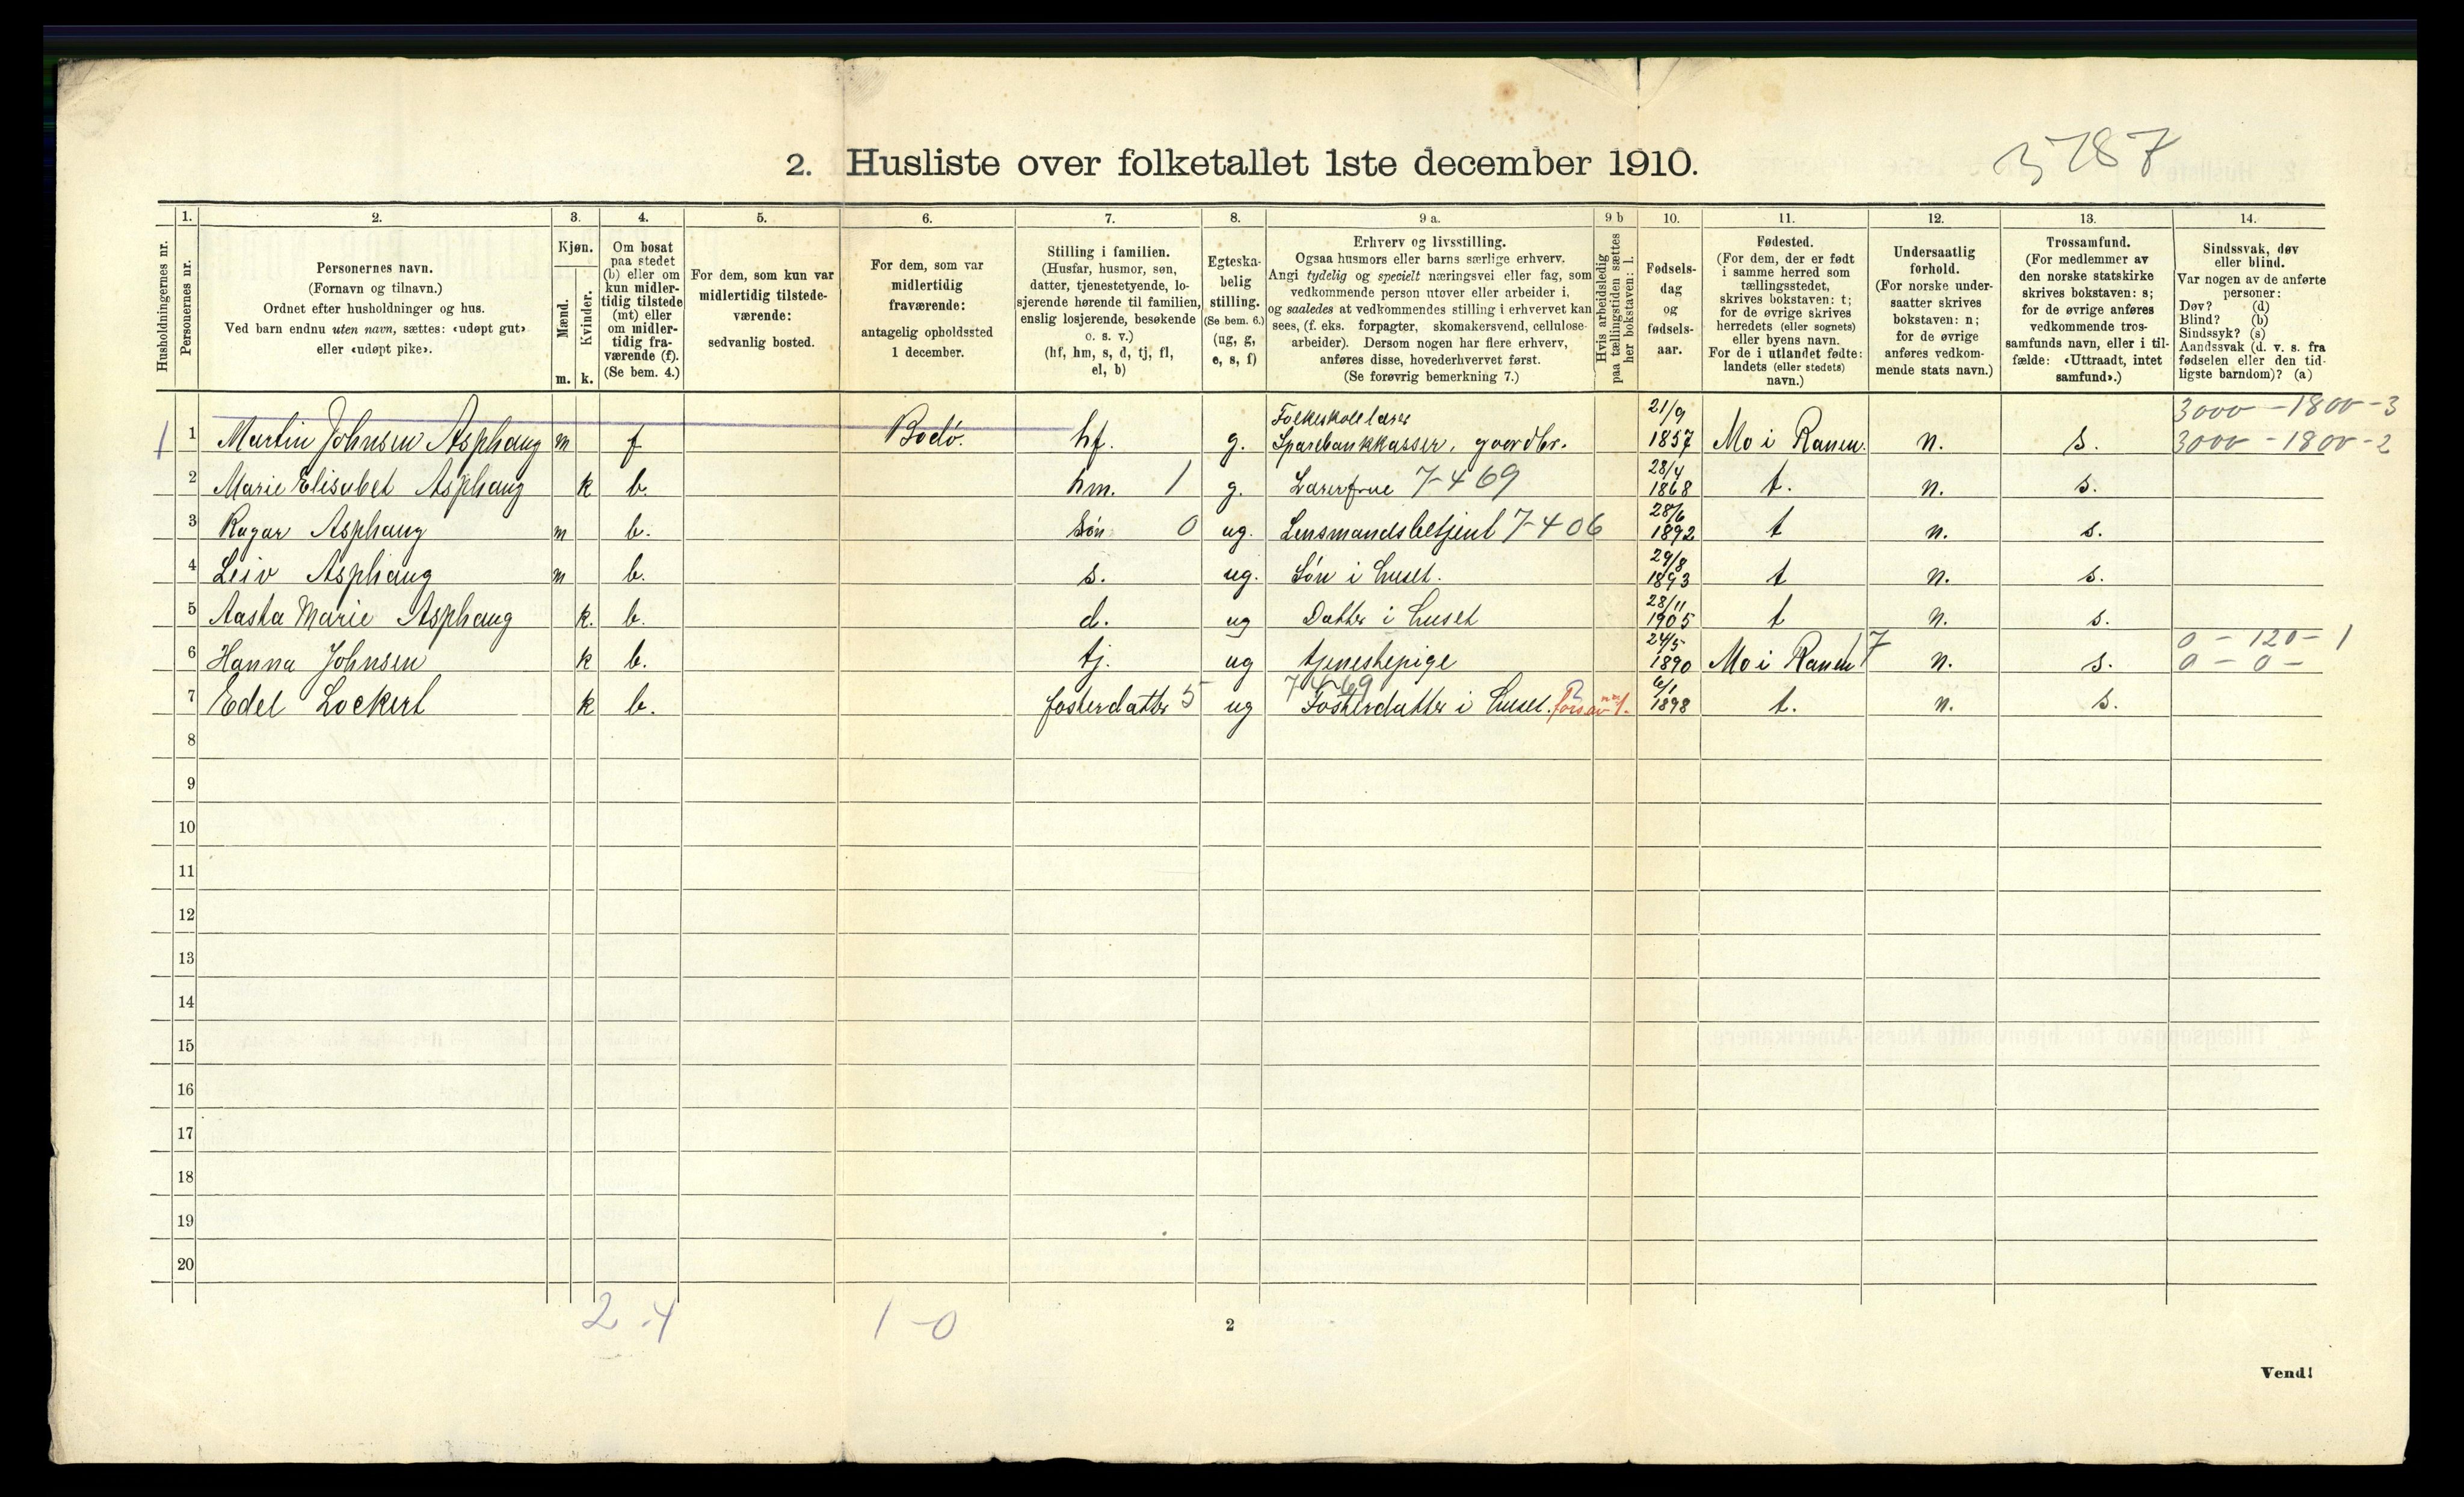 2. Husliste over folketallet 1ste december 1910.
3787
1. 2. 3. 4. 5. 6. 7. 8. 9 a. 9 b 10. 11. 12. 13. 14.
Husholdningernes nr.
Personernes nr.
Personernes navn.
(Fornavn og tilnavn.)
Ordnet efter husholdninger og hus.
Ved barn endnu uten navn, sættes: «udøpt gut»
eller «udøpt pike».
Kjøn.
Mænd.
Kvinder.
m. k.
Om bosat
paa stedet
(b) eller om
kun midler-
tidig tilstede
(mt) eller
om midler-
tidig fra-
værende (f).
(Se bem. 4.)
For dem, som kun var
midlertidig tilstede-
værende:
sedvanlig bosted.
For dem, som var
midlertidig
fraværende:
antagelig opholdssted
1 december.
Stilling i familien.
(Husfar, husmor, søn,
datter, tjenestetyende, lo-
sjerende hørende til familien,
enslig losjerende, besøkende
o. s. v.)
(hf, hm, s, d, tj, fl,
el, b)
Egteska-
belig
stilling.
(Se bem. 6.)
(ug, g,
e, s, f)
Erhverv og livsstilling.
Ogsaa husmors eller barns særlige erhverv.
Angi tydelig og specielt næringsvei eller fag, som
vedkommende person utøver eller arbeider i,
og saaledes at vedkommendes stilling i erhvervet kan
sees, (f. eks. forpagter, skomakersvend, cellulose-
arbeider). Dersom nogen har flere erhverv,
anføres disse, hovederhvervet først.
(Se forøvrig bemerkning 7.)
Hvis arbeidsledig
paa tællingstiden sættes
her bokstaven: l.
Fødsels-
dag
og
fødsels-
aar.
Fødested.
(For dem, der er født
i samme herred som
tællingsstedet,
skrives bokstaven: t;
for de øvrige skrives
herredets (eller sognets)
eller byens navn.
For de i utlandet fødte:
landets (eller stedets)
navn.)
Undersaatlig
forhold.
(For norske under-
saatter skrives
bokstaven: n;
for de øvrige
anføres vedkom-
mende stats navn.)
Trossamfund.
(For medlemmer av
den norske statskirke
skrives bokstaven: s;
for de øvrige anføres
vedkommende tros-
samfunds navn, eller i til-
fælde: «Uttraadt, intet
samfund».)
Sindssvak, døv
eller blind.
Var nogen av de anførte
personer:
Døv? (d)
Blind? (b)
Sindssyk? (s)
Aandssvak (d. v. s. fra
fødselen eller den tid-
ligste barndom)? (a)
Folkeskolelærer 21/9 3000 - 1800 - 3
1 1 Martin Johnsen Asphaug m f Bodö. hf. g. Sparebankkasser, gaardbr. 1857 Mo i Ranen. n. s. 3000 - 1800 - 2
28/4
2 Marie Elisabet Asphaug k b. hm. 1 g. Lærerfrue 7-469 1868 t. n. s.
28/6
3 Ragar Asphaug m b. søn 0 ug. Lensmandsbetjent 7-406 1892 t n. s.
29/8
4 Leiv Asphaug m b. s. ug. Sön i huset. 1893 t n. s.
28/11
5 Aasta Marie Asphaug k. b. d. ug Datter i huset 1905 t n. s.
24/5 7 0 - 120 - 1
6 Hanna Johnsen k b. tj. ug tjenestepige 1890 Mo i Ranen n. s. 0 - 0 -
7469 6/1
7 Edel Lockert k b. fosterdatter 5 ug Fosterdatter i huset. fors. av nr. 1. 1898 t. n. s.
8
9
10
11
12
13
14
15
16
17
18
19
20
2-4 1-0
2
Vend!